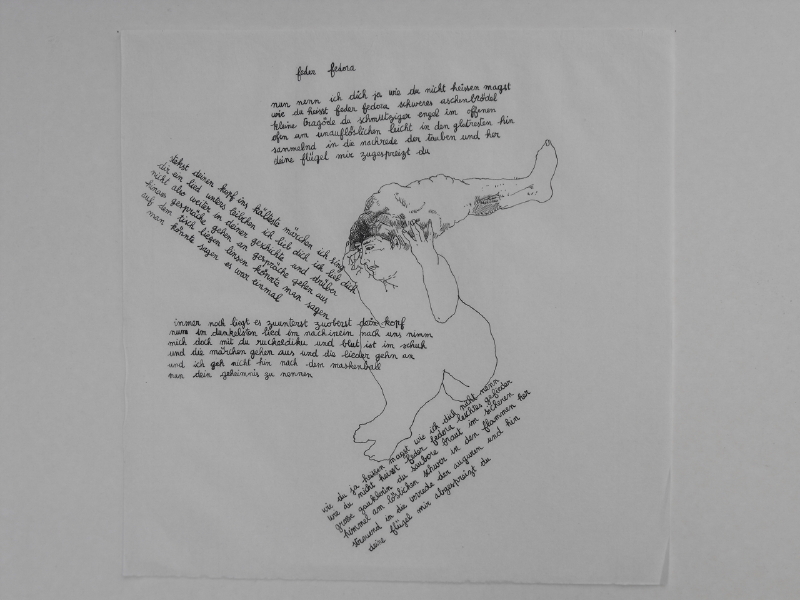 feder fedora
nun nenn ich dich ja wie du nicht heissen magst
wie du heisst feder fedora schweres aschenbrödel
kleine tragöde du schmutziger engel im offenen
ofen am unauflöslichen leicht in den glutresten hin
sammelnd in die nachrede der tauben und her
deine flügel mir zugespreizt du
steckst deinen kopf ins kälteste märchen ich sing
dir ein lied unters leibchen ich lieb dich ich lieb dich
nicht also weiter in deiner geschichte und drüber
hinaus gespräche gehen an gespräche gehen aus
auf dem tisch liegen linsen könnte man sagen
man könnte sagen es war einmal
immer noch liegt es zuunterst zuoberst dein kopf
nun im dunkelsten lied im nachhinein nach uns nimm
mich doch mit du ruckeldiku und blut ist im schuh
und die märchen gehen aus und die lieder gehn an
und ich geh nicht hin nach dem maskenball
nun dein geheimnis zu nennen
wie du ja heissen magst wie ich dich nicht nenn
wie du nicht heisst feder fedora leichtes gefieder
grosse gauklerin du saubere braut im sicheren
himmel am löslichen schwer in den flammen her
streuend in die vorrede der auguren und hin
deine flügel mir abgespreizt du